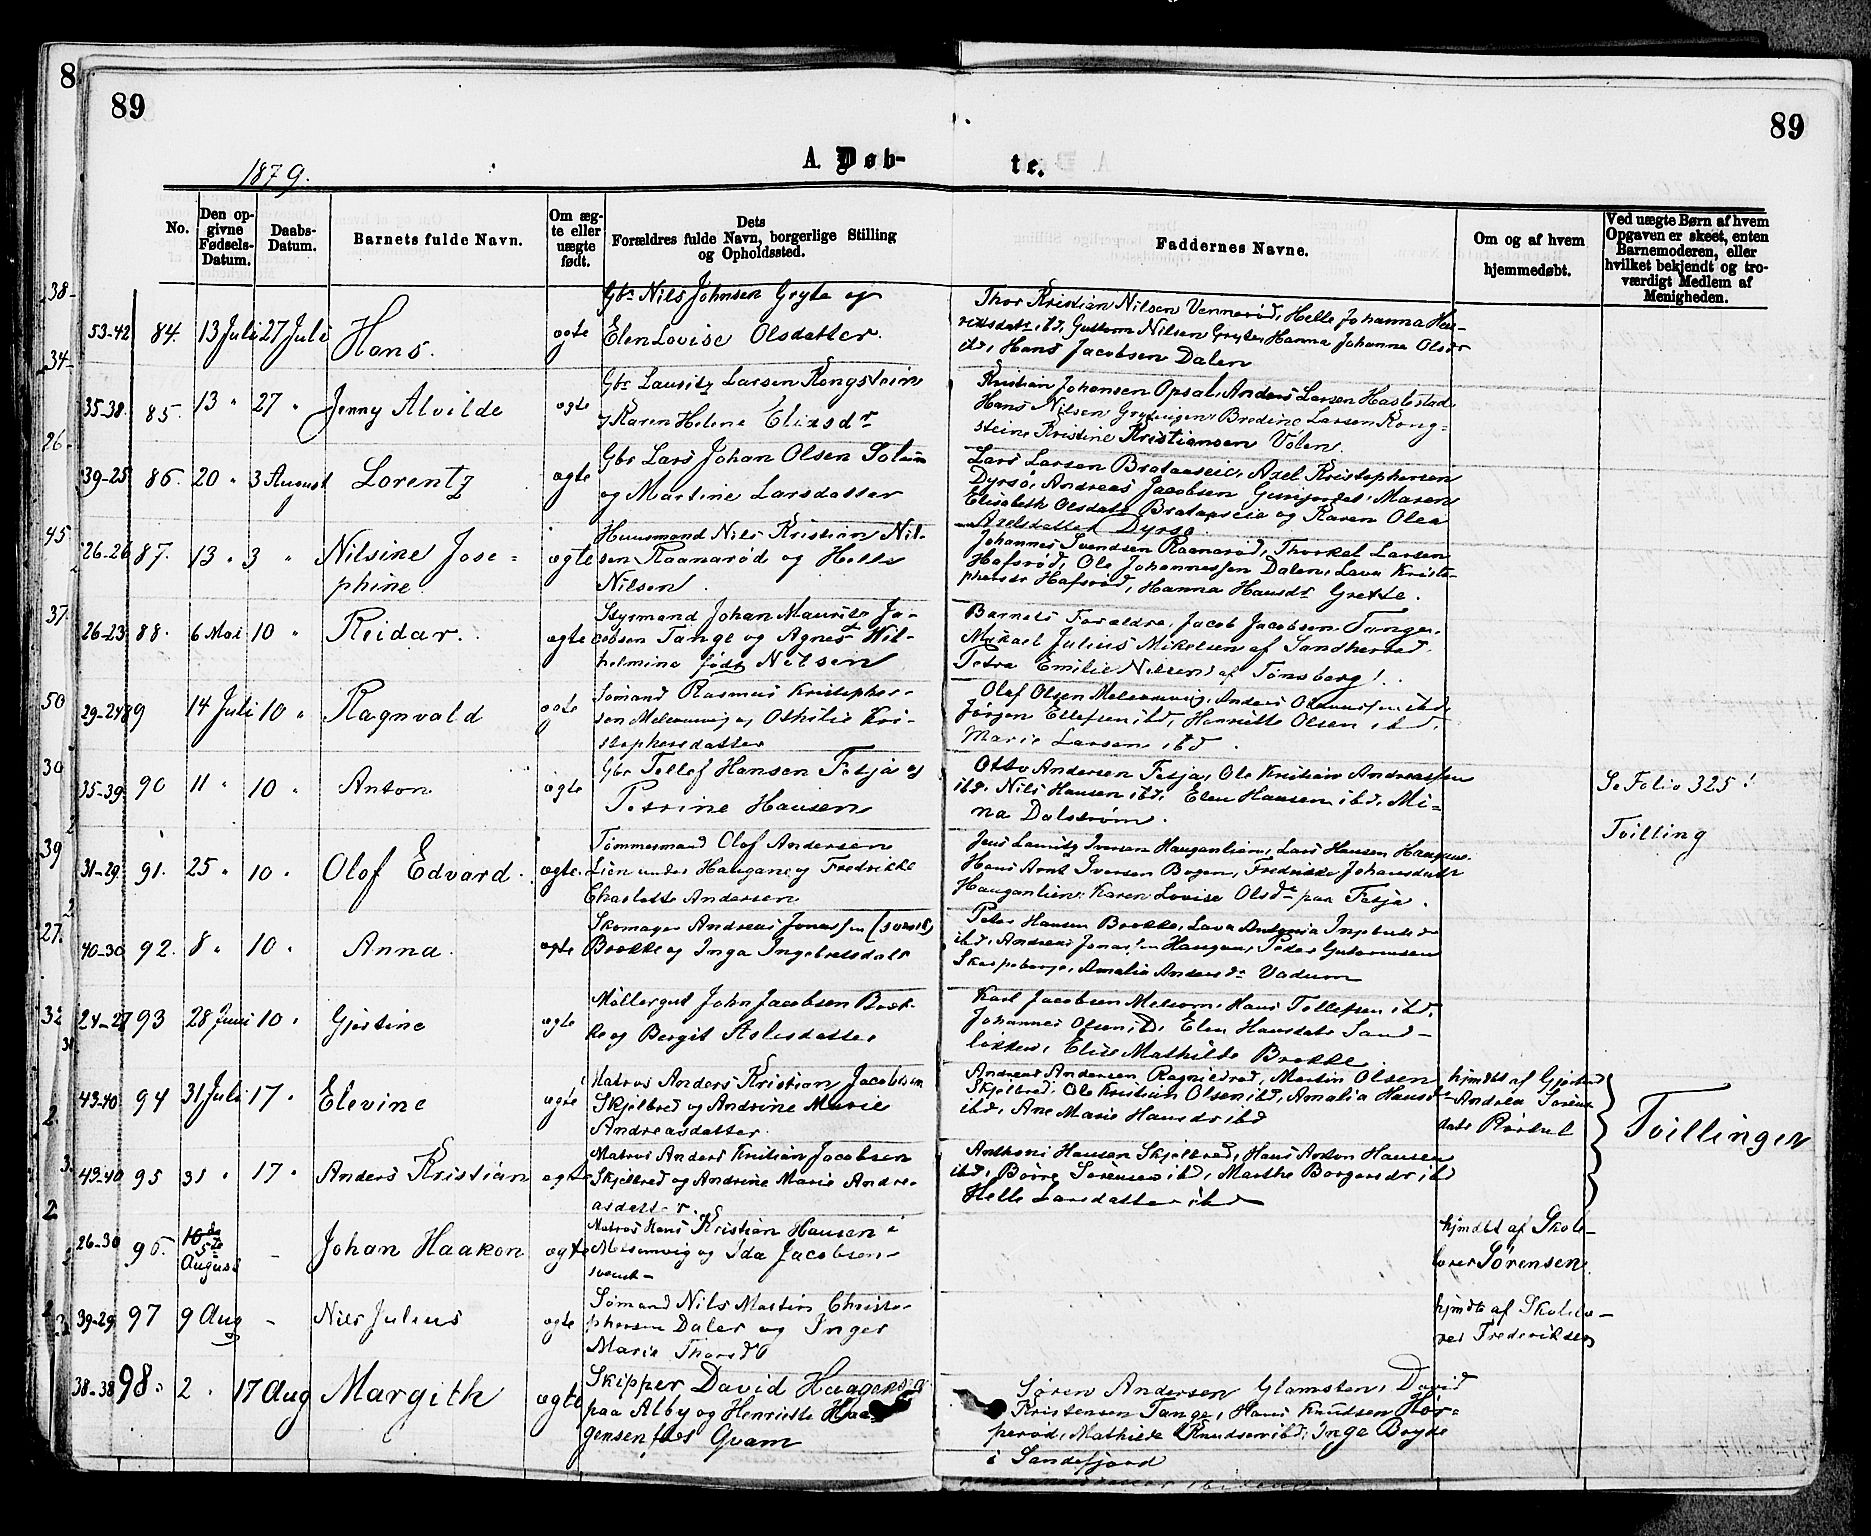 8
89
89
A. Døb-
te.
1879.
No.
Den op-
givne
Fødsels-
Datum.
Daabs-
Datum.
Barnets fulde Navn.
Om æg-
te eller
uægte
født.
Dets
Forældres fulde Navn, borgerlige Stilling
og Opholdssted.
Faddernes Navne.
Om og af hvem
hjemmedøbt.
Ved uægte Børn af hvem
Opgaven er skeet, enten
Barnemoderen, eller
hvilket bekjendt og tro-
værdigt Medlem af
Menigheden.
53-42 84. 13 Juli 27 Juli Hans. ægte
Gbr Nils Johnsen Gryte og
Elen Lovise Olsdatter.
Thor Kristian Nilsen Vennerød, Helle Johanna Hen-
riksdatr ibd, Guttorm Nilsen Gryte, Hanna Johanne Olsdr
ibd, Hans Jacobsen Dalen
35-38. 85. 13 " 27 " Jenny Alvilde ægte
Gbr Lauritz Larsen Rongstein
og Karen Helene Eliasdr
Kristian Johansen Opsal, Anders Larsen Haslestad
Hans Nilsen Bredine Larsen Rong-
stein, Kristine Kristiansen Volen.
39-25 86. 20 " 3 August Lorentz ægte
Gbr Lars Johan Olsen Solum
og Martine Larsdatter
Lars Larsen Brataaseie, Axel Kristophersen
Dyrsø, Andreas Jacobsen Maren
Elisabeth Olsdatr Brataaseie og Karen Olea
Axelsdatter Dyrsø
26-26 87. 13 " 3 " Nilsine Jose-
phine. ægte
Huusmand Nils Kristian Nil-
sen Raanarød og Helle
Nilsen
Johannes Svendsen Raanarød, Thorkel Larsen
Hafsrød, Ole Johannessen Dalen, Lava Kristo-
phersdr Hafsrød, Hanna Hansdr Grette.
26-23 88. 6 Mai 10 " Reidar. ægte
Styrmand Johan Mauritz Ja-
cobsen Tange og Agnes Wil-
helmine født Nilsen
Barnets Forældre, Jacob Jacobsen Tange,
Mikael Julius Mikelsen af Sandherred.
Petra Emilie Nilsen af Tønsberg!
29-24 89 14 Juli 10 " Ragnvald ægte
Sømand Rasmus Kristopher-
sen Melsomvig og Othilie Kri-
stophersdatter
Olaf Olsen Melsomvig, Anders ibd,
Jørgen Ellefsen ibd, Henriette Olsen ibd,
Marie Larsen ibd.
35-39 90 11 " 10 " Anton ægte
Gbr Tollef Hansen Fesja og
Petrine Hansen
Otto Andersen Fesja, Ole Kristian Andreassen
ibd, Nils Hansen ibd, Elen Hansen ibd, Mi-
na Dalstrøm.
Se Folio 325!
Tvilling
31-29 91. 25 " 10 " Olof Edvard. ægte.
Tømmermand Olof Andersen
Lien under Haugan og Fredrikke
Charlotte Andersen
Jens Lauritz Iversen Hauganlien, Lars Hansen Haugan
Hans Arnt Iversen Bogen, Fredrikke Johansdatr
Hauganlien, Karen Lovise Olsdr paa Fesja.
40-30 92. 8 " 10 " Anna. ægte
Skomager Andreas Jonassen (svensk)
Brække og Inga Ingebretsdatr
Peter Hansen Brekke, Lava Antonia
ibd, Andreas Jonassen Haugan, Peder Guttormsen
Skarpeborge, Amalia Andersdr Vadum
24-27 93 28 Juni 10 " Gjestine ægte
Møllergut John Jacobsen Brek-
ke og Bergit Aslesdatter
Karl Jacobsen Melsom, Hans Tollefsen ibd,
Johannes Olsen ibd, Elen Hansdatr Sand-
løkken, Elise Mathilde Brekke
43-40 94 31 Juli 17 " Elevine ægte
Matros Anders Kristian Jacobsen
Skjelbred og Andrine Marie
Andreasdatter.
Andreas Andersen Martin Olsen
Skjelbred, Ole Kristian Olsen ibd, Amalia Hansdr
ibd, Ane Marie Hansdr ibd
hjmdbt af
Andrea Søren-
datr
Tvillinger
43-40 95 31 " 17 " Anders Kristian ægte
Matros Anders Kristian Jacobsen
Skjelbred og Andrine Marie Andre-
asdatter.
Anthoni Hansen Skjelbred, Hans Anton Hansen
ibd, Børre Sørensen ibd, Marthe Borgersdr ibd
Helle Larsdatter ibd
26-30 96. 5te
August - Johan Haakon ægte
Matros Hans Kristian Hansen i
Melsomvig og Ida Jacobsen
svensk-
hjmdbt af Skole-
lærer Sørensen.
39-29 97 9 Aug - Nils Julius ægte
Sømand Nils Martin Christo-
phersen Daler og Inger
Marie Thorsdr
hjmdbt af Skolelæ-
rer Frederiksen
38-38 98. 2 " 17 Aug Margith ægte
Skipper David Haagensen
paa Alby og Henriette Haa-
gensen født Qvam
Søren Andersen Glamsten, David
Kristensen Tange, Hans Knudsen Hør-
perød, Mathilde Knudsen ibd, Inga Bryde
i Sandefjord
38-
34-
26-
45
37.
50
30
39
27.
32